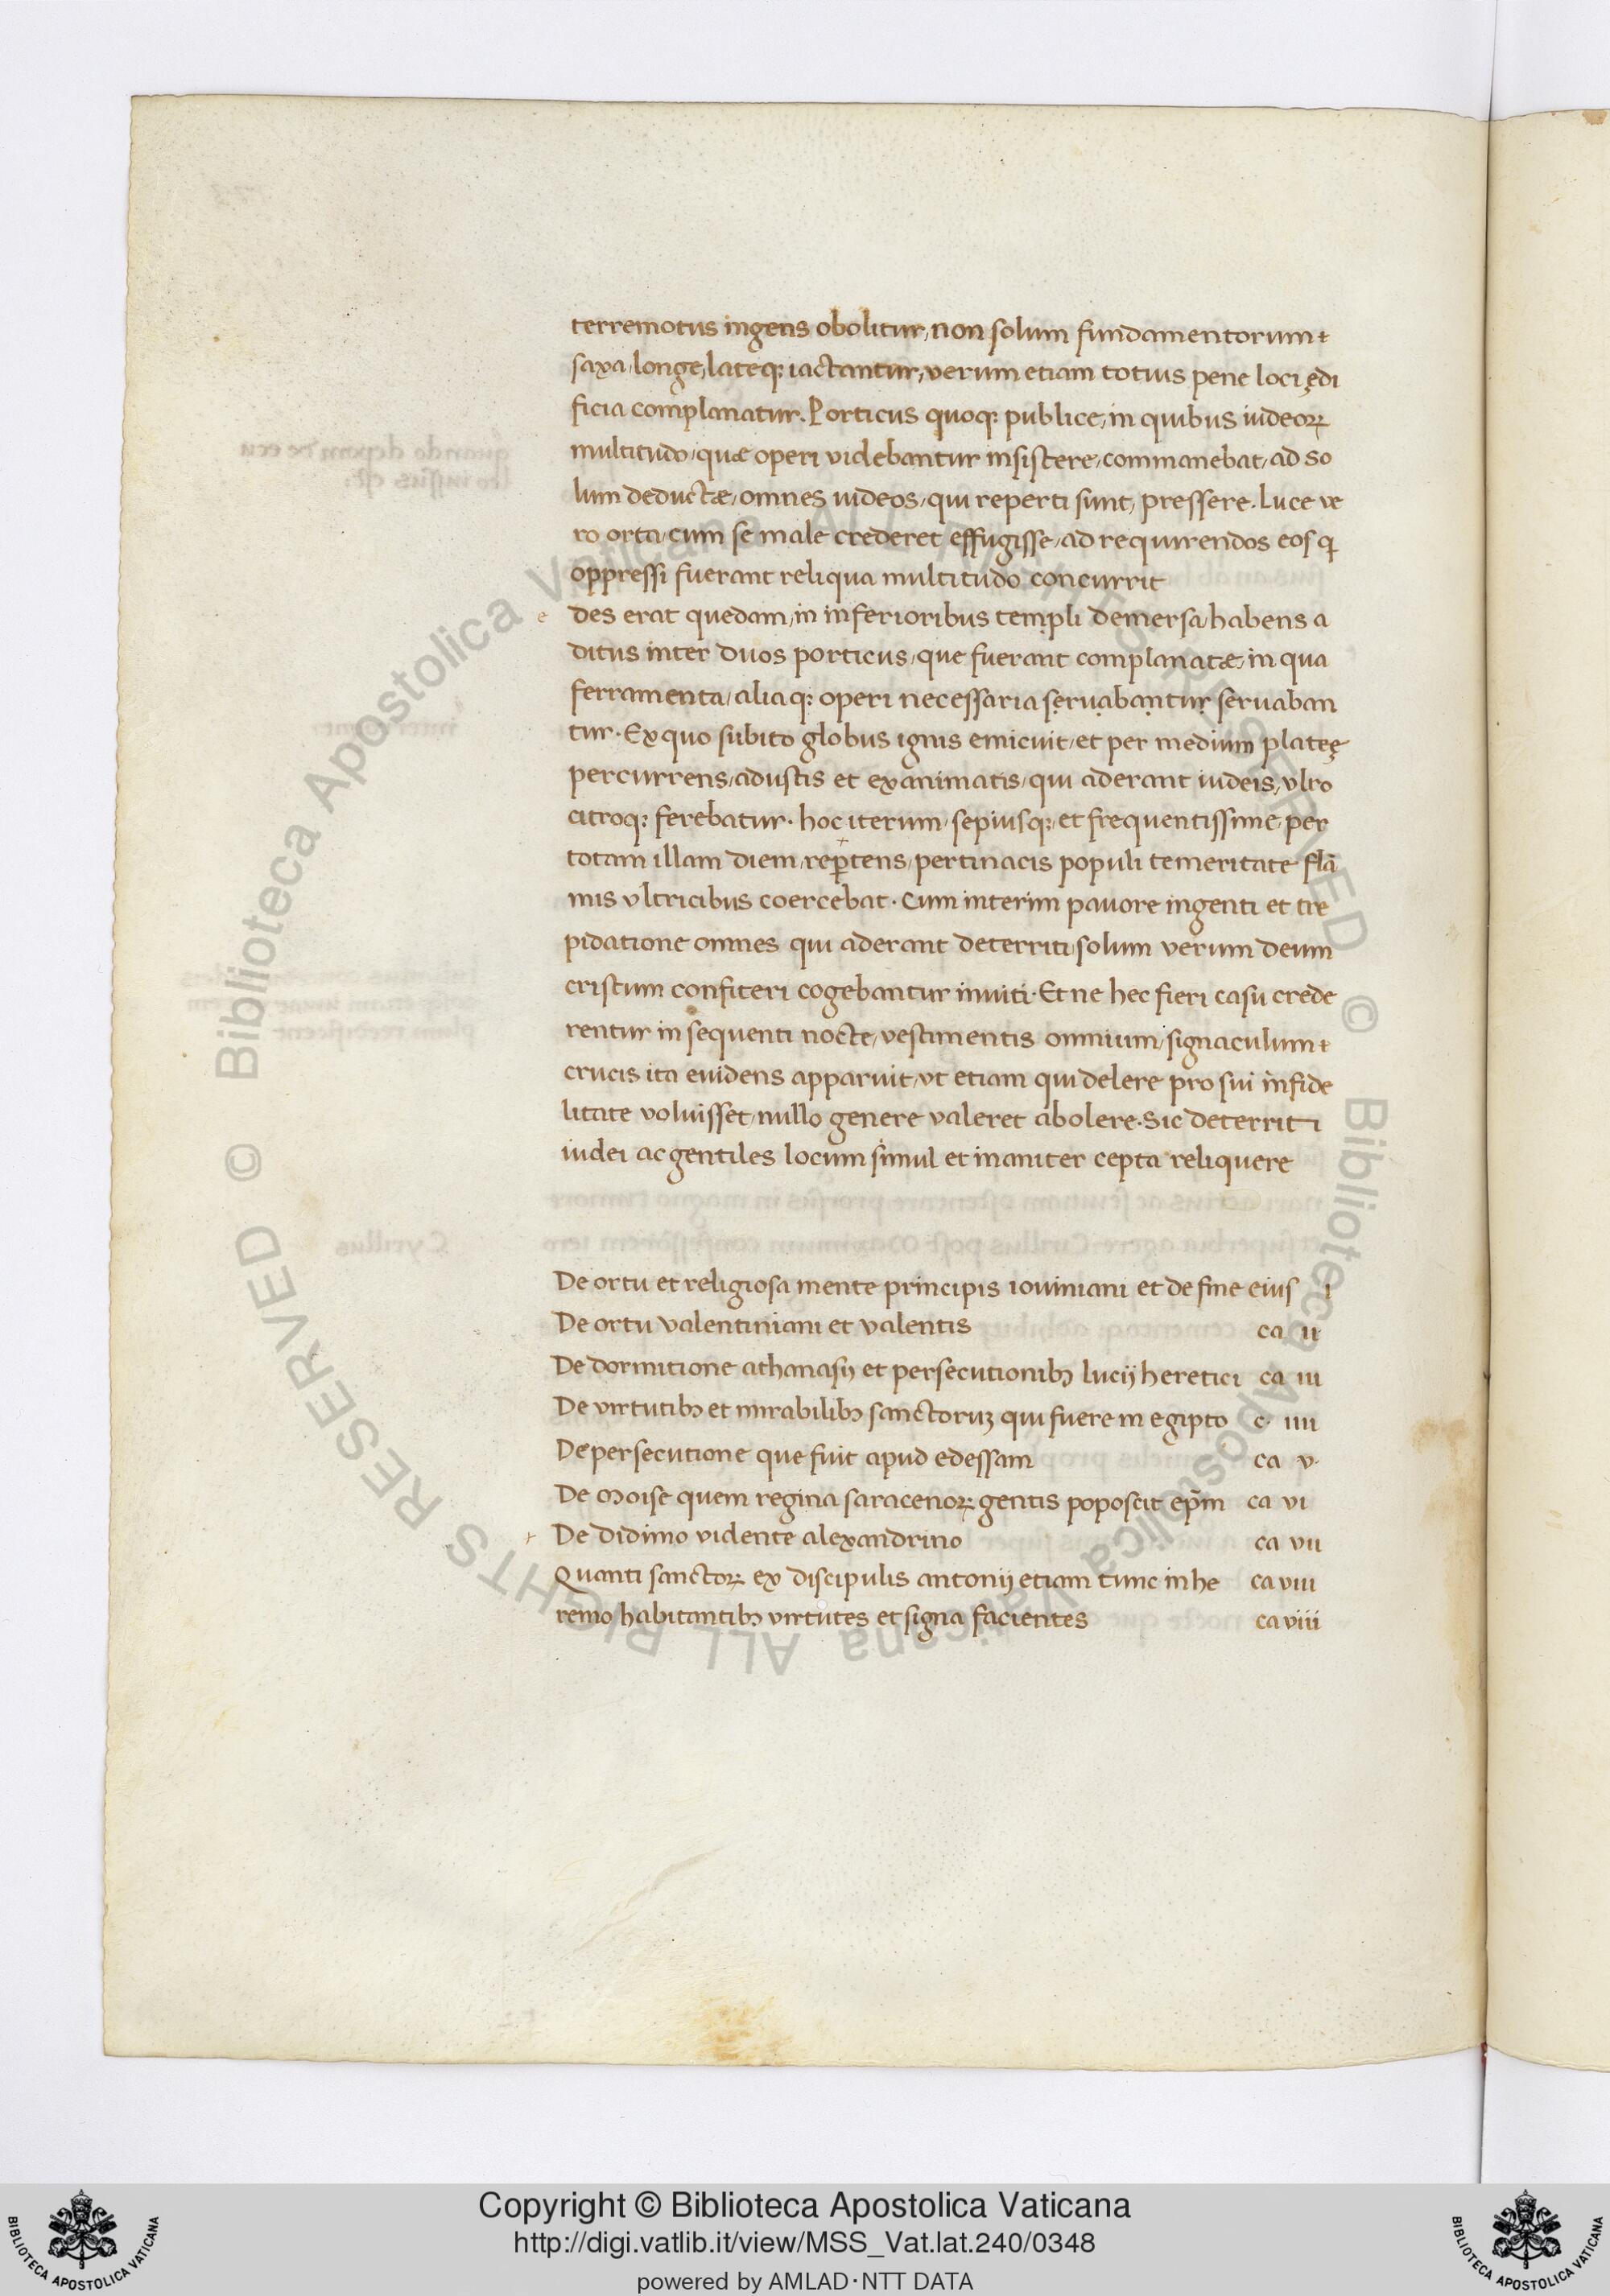 terremotus ingens obolitur, non solum fundamentorum
saxa, longe, lateqꝫ iactantur, verum etiam totius pene loci ędi
ficia complanatur. Porticus quoqꝫ publice, in quibus iudeoꝝ
multitudo, quæ operi videbantur insistere, commanebat, ad so
lum deductæ, omnes iudeos, qui reperti sunt, pressere. Luce ve
ro orta, cum se male crederet effugisse, ad requirendos eos q
oppressi fuerant reliqua multitudo concurrit
e des erat quedam, in inferioribus templi demersa, habens a
ditus inter duos porticus, que fuerant complanatæ, in qua
ferramenta, aliaqꝫ operi necessaria seruabantur seruaban
tur. Ex quo subito globus ignis emicuit, et per medium plateę
percurrens, adustis et exanimatis, qui aderant iudeis, vlro
citroqꝫ ferebatur. hoc iterum, sepiusqꝫ, et frequentissime, per
totam illam diem, rep̲tens, pertinacis populi temeritate flā
mis vltricibus coercebat. Cum interim pauore ingenti et tre
pidatione omnes qui aderant deterriti, solum verum deum
cristum confiteri cogebantur inuiti. Et ne hec fieri casu crede
rentur in sequenti nocte, vestimentis omnium, signaculum
crucis ita euidens apparuit, vt etiam qui delere pro sui infide
litate voluisset, nullo genere valeret abolere. Sic deterriti
iudei ac gentiles locum simul et inaniter cepta reliquere
De ortu et religiosa mente principis iouiniani et de fine eius I
De ortu valentiniani et valentis ca II
De dormitione athanasij et persecutionibꝫ lucij heretici ca III
De virtutibꝫ et mirabilibꝫ sanctoruꝫ qui fuere in egipto c. IIII
De persecutione que fuit apud edessam ca v.
De Moise quem regina saracenoꝝ gentis poposcit ep̄m ca vi
De didimo vidente alexandrino ca vii
Quanti sanctoꝝ ex discipulis antonij etiam tunc in he ca viii
remo habitantibꝫ virtutes et signa facientes ca viiii
Copyright © Biblioteca Apostolica Vaticana
http://digi.vatlib.it/view/MSS_Vat.lat.240/0348
powered by AMLAD·NTT DATA